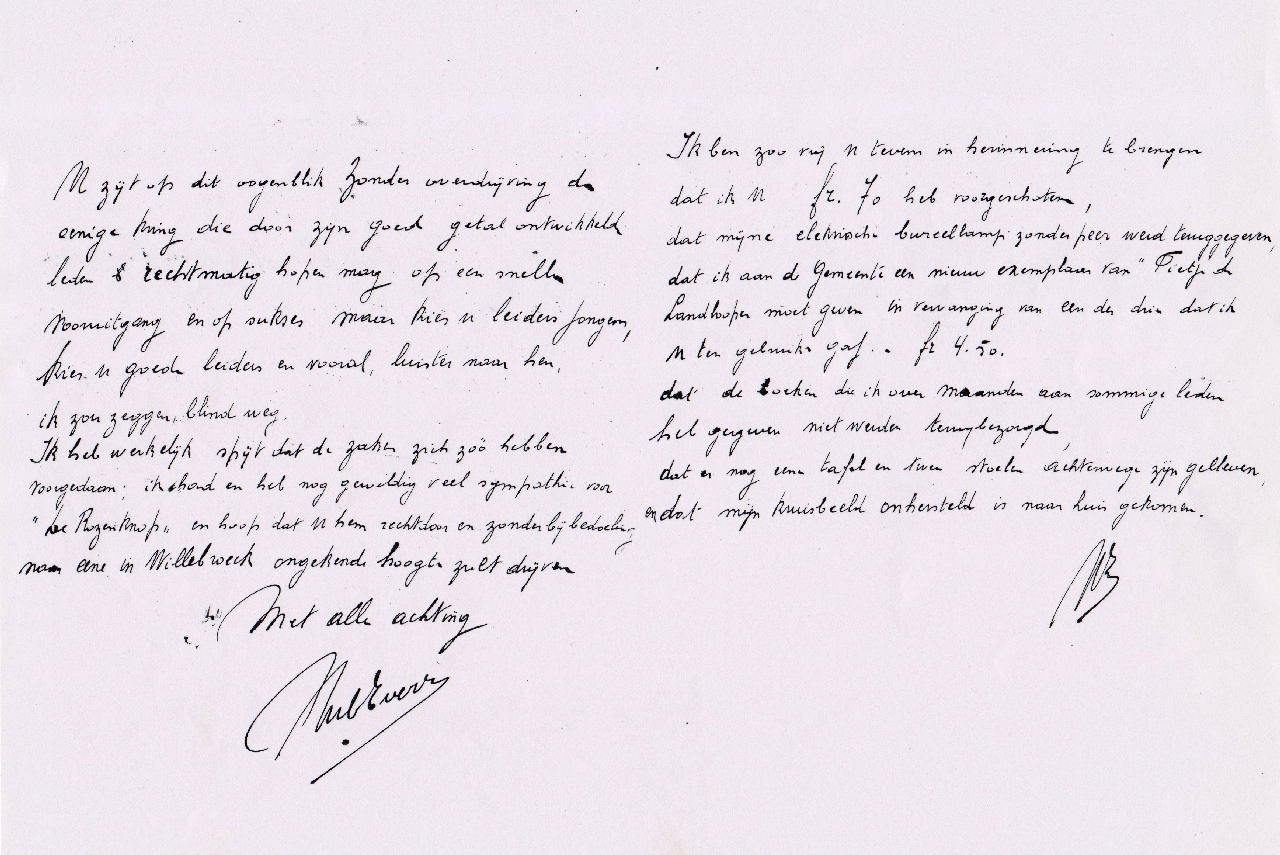 U zijt op dit oogenblik zonder overdrijving de
eenige kring die door zijn goed getal ontwikkeld
leden rechtmatig hopen mag op een snelle
vooruitgang en op sukses maar kies u leiders jongens,
kies u goede leiders en vooral, luister naar hen,
ik zou zeggen, blind weg.
Ik heb werkelijk spijt dat de zaken zich zóó hebben
voorgedaan; ik had en heb nog geweldig veel sympathie voor
"De Rozenknop" en hoop dat u hem rechtdoor en zonder bijbedoeling
naar eene in Willebroeck ongekende hoogte zult drijven
Met alle achting
Ik ben zoo vrij u tevens in herinnering te brengen
dat ik u fr. 70 heb voorgeschoten,
dat mijne elektrische bureellamp zonder peer werd teruggegeven,
dat ik aan de Gemeente een nieuw exemplaar van "Pietje de
Landlooper moet geven in vervanging van een der drie dat ik
u ten gebruike gaf. - fr 4.50.
dat de boeken die ik over maanden aan sommige leden
heb gegeven niet werden terugbezorgd,
dat er nog eene tafel en twee stoelen achterwege zijn gebleven,
en dat mijn kruisbeeld onhersteld is naar huis gekomen.